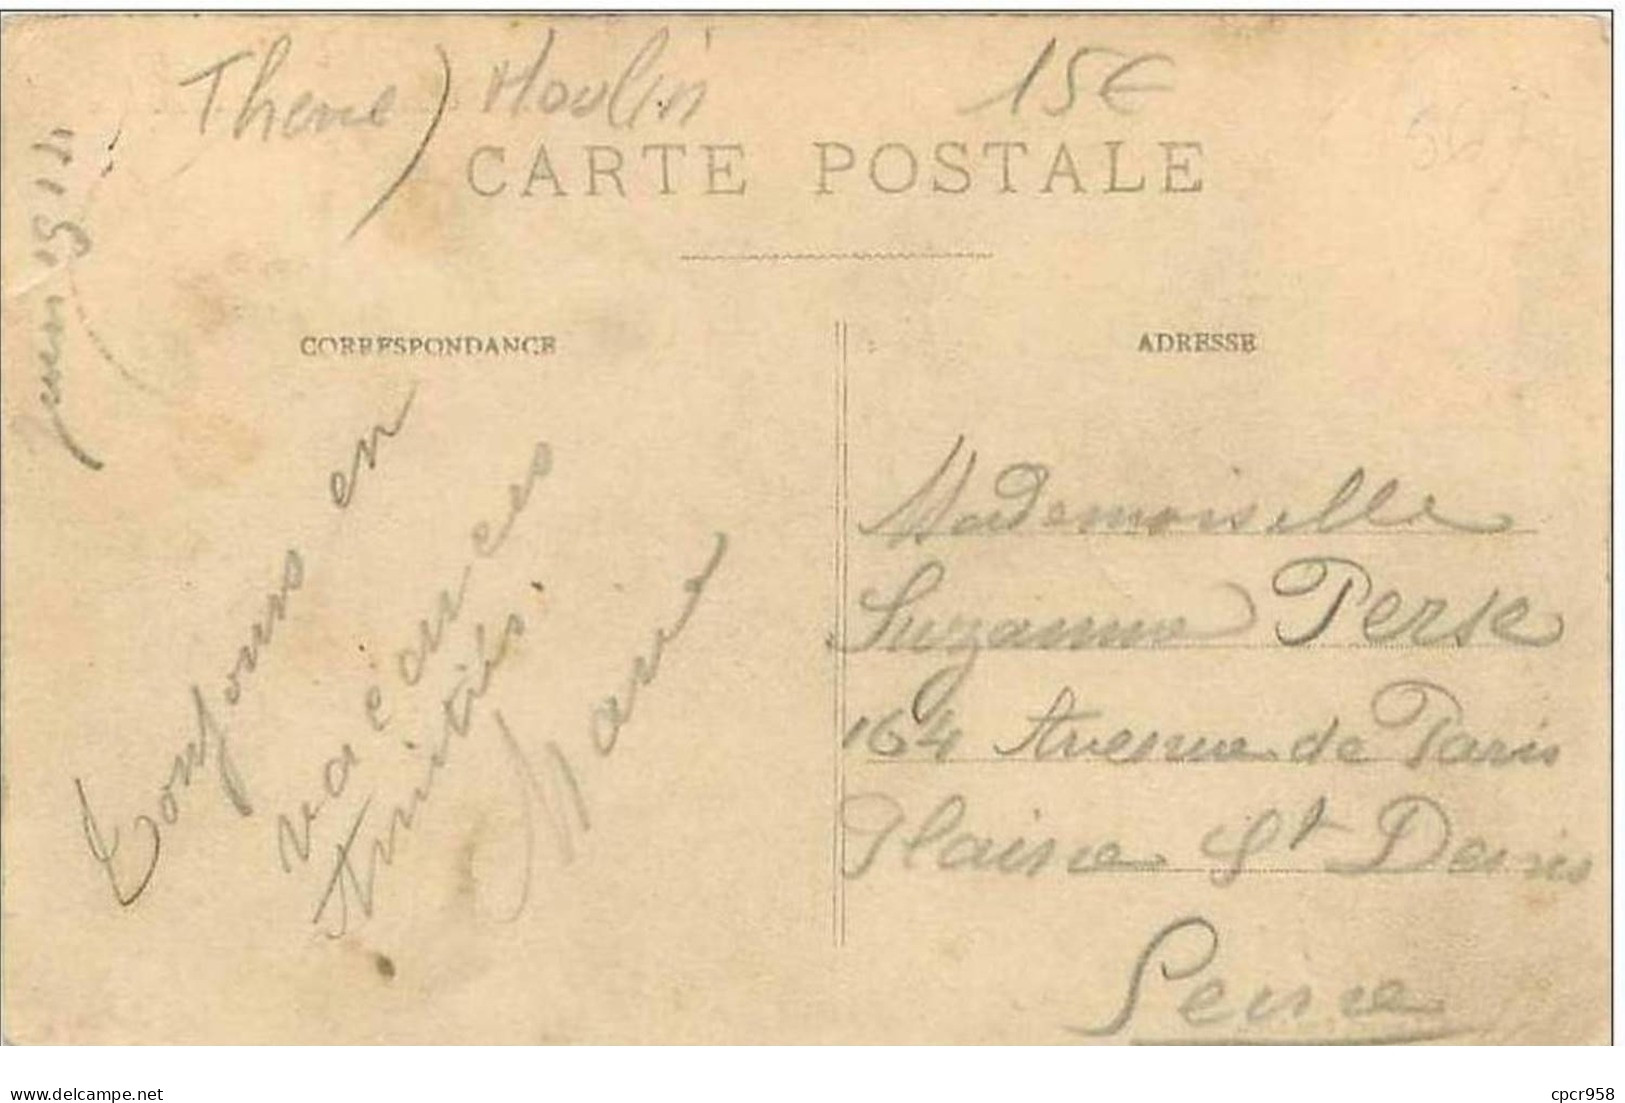 Thème) Moulin 15€
CARTE POSTALE
juin 1911
CORRESPONDANCE
Toujours en
vacances
Amitiés.
Marie
ADRESSE
Mademoiselle
Suzanne Perse
164 Avenue de Paris
Plaine St Denis
Seine
www.delcampe.net
cpcr958